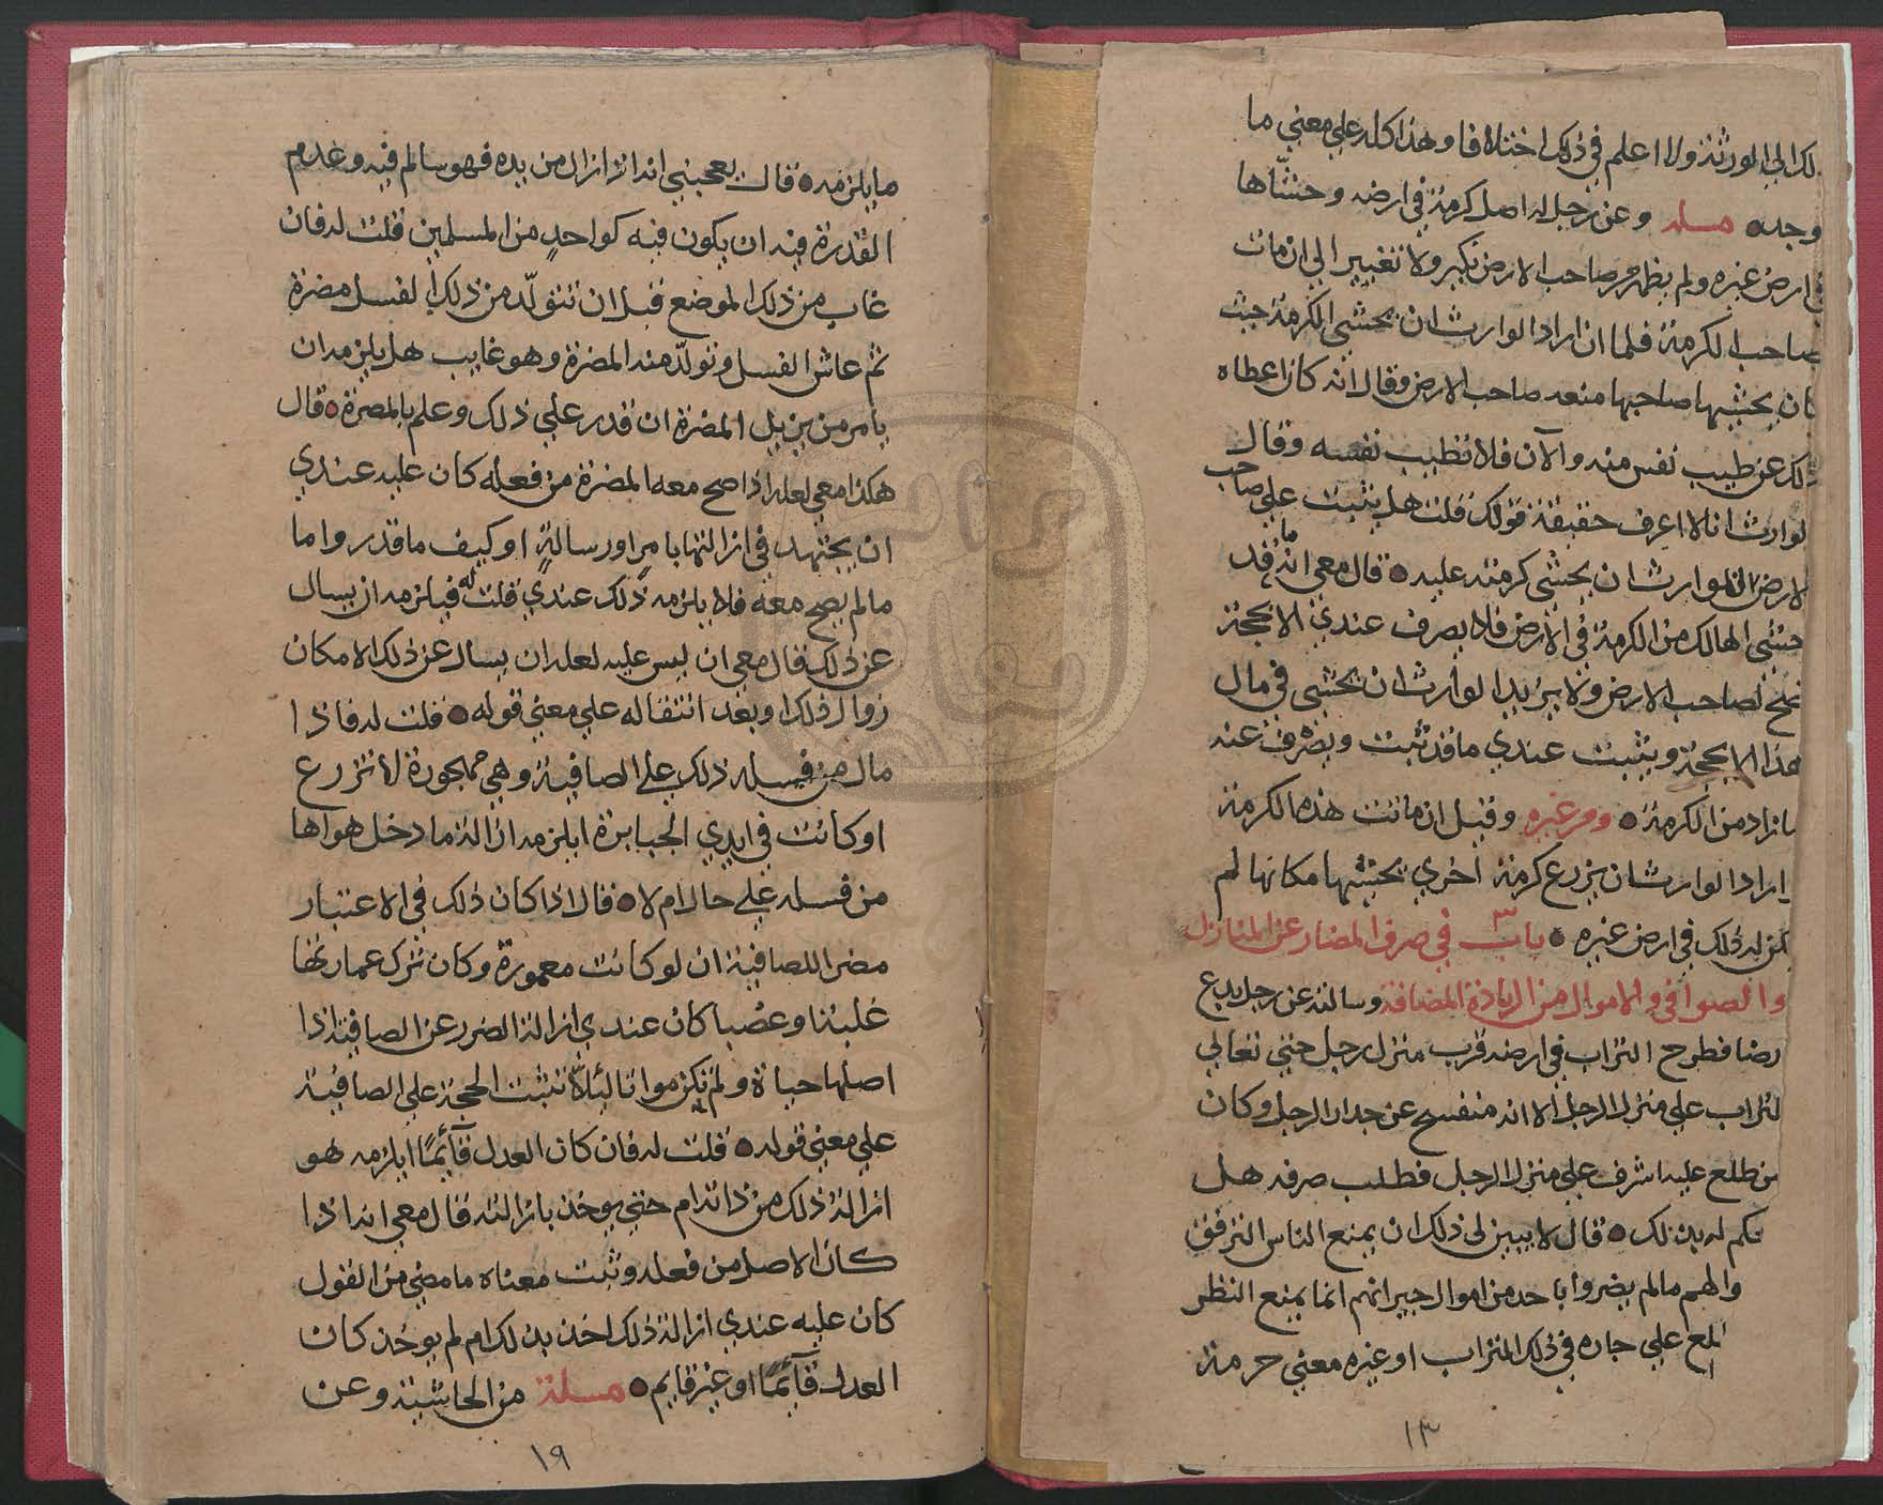 لك الى الورثة ولا اعلم في ذلك اختلافا وهذا كله على معنى ما
وجده مسلة وعن رجل له اصل كرمة في ارضه وحشاها
ارض غيره ولم يظهر من صاحب الارض نكير ولا تغيير الي ان مات
صاحب الكرمة فلما ان اراد الوارث ان يحشي الكرمة حيث
كان يحشيها صاحبها منعه صاحب الارض وقال انه كان اعطاه
ذلك عن طيب نفس منه والآن فلا تطيب نفسه وقال
لوارث انا لا اعرف حقيقة قولك قلت هل يثبت على صاحب
لارض للوارث ان يحشي كرمته عليه قال معي انه ما قد
حشى الهالك من الكرمة في الارض فلا يصرف عندي الا بحجة
تصح لصاحب الارض ولا يريد الوارث ان يحشي في مال
هذا الا بحجة ويثبت عندي ما قد ثبت ويصرف عنه
ما زاد من الكرمة ومن غيره وقيل ان ماتت هذه الكرمة
اراد الوارث ان يزرع كرمة اخرى يحشيها مكانها لم
يكن له ذلك في ارض غيره باب ٣ في صرف المضار عن المنازل
والصوافي والاموال من الزيادة المضافة وسالته عن رجل يدع
رضا فطرح التراب في ارضه قرب منزل رجل حتى تعالي
لتراب على منزل الرجل الا انه منفسح عن جدار الرجل وكان
من طلع عليه اشرف على منزل الرجل فطلب صرفه هل
يحكم له بذلك قال لا يبين لي ذلك ان يمنع الناس الترفق
والهم ما لم يضروا باحد من اموال جيرانهم انما يمنع النظر
لمع على جاره في ذلك التراب او غيره معنى حرمة
١٣
ما يلزمه قال يعجبني انه اذا زال من يده فهو سالم فيه وعدم
القدرة فيه ان يكون فيه كواحد من المسلمين قلت له فان
غاب من ذلك الموضع قبل ان تتولّد من ذلك الفسل مضرة
ثم عاش الفسل وتولّد منه المضرة وهو غايب هل يلزمه ان
يامر من يزيل المضرة ان قدر على ذلك وعلم بالمضرة قال
هكذا معي لعله اذا صح معه المضرة من فعله كان عليه عندي
ان يجتهد في ازالتها بامرٍ او رسالةٍ او كيف ما قدر واما
ما لم يصح معه فلا يلزمه ذلك عندي قلت له فيلزمه ان يسال
عن ذلك قال معي ان ليس عليه لعله ان يسال عن ذلك الامكان
زوال ذلك او بعد انتقاله على معنى قوله قلت له فاذا
مال من فسله ذلك على الصافية وهي مهجورة لا تزرع
او كانت في ايدي الجبابرة ايلزمه ازالة ما دخل هواها
من فسله على حال ام لا قال اذا كان ذلك في الاعتبار
مضرا للصافية ان لو كانت معمورة وكان ترك عمارتها
غلبتا وغصبا كان عندي ازالة الضرر عن الصافية اذا
اصلها حياة ولم يكن مواتا لئلا تثبت الحجة على الصافية
على معنى قوله قلت له فان كان العدل قآئمًا ايلزمه هو
ازالة ذلك من ذاته ام حتى يوخذ بازالته قال معي انه اذا
كان الاصل من فعله وثبت معناه ما مضى من القول
كان عليه عندي ازالة ذلك اخذ بذلك ام لم يوخذ كان
العدل قآئمًا او غير قايم مسلة من الحاشية وعن
١٩